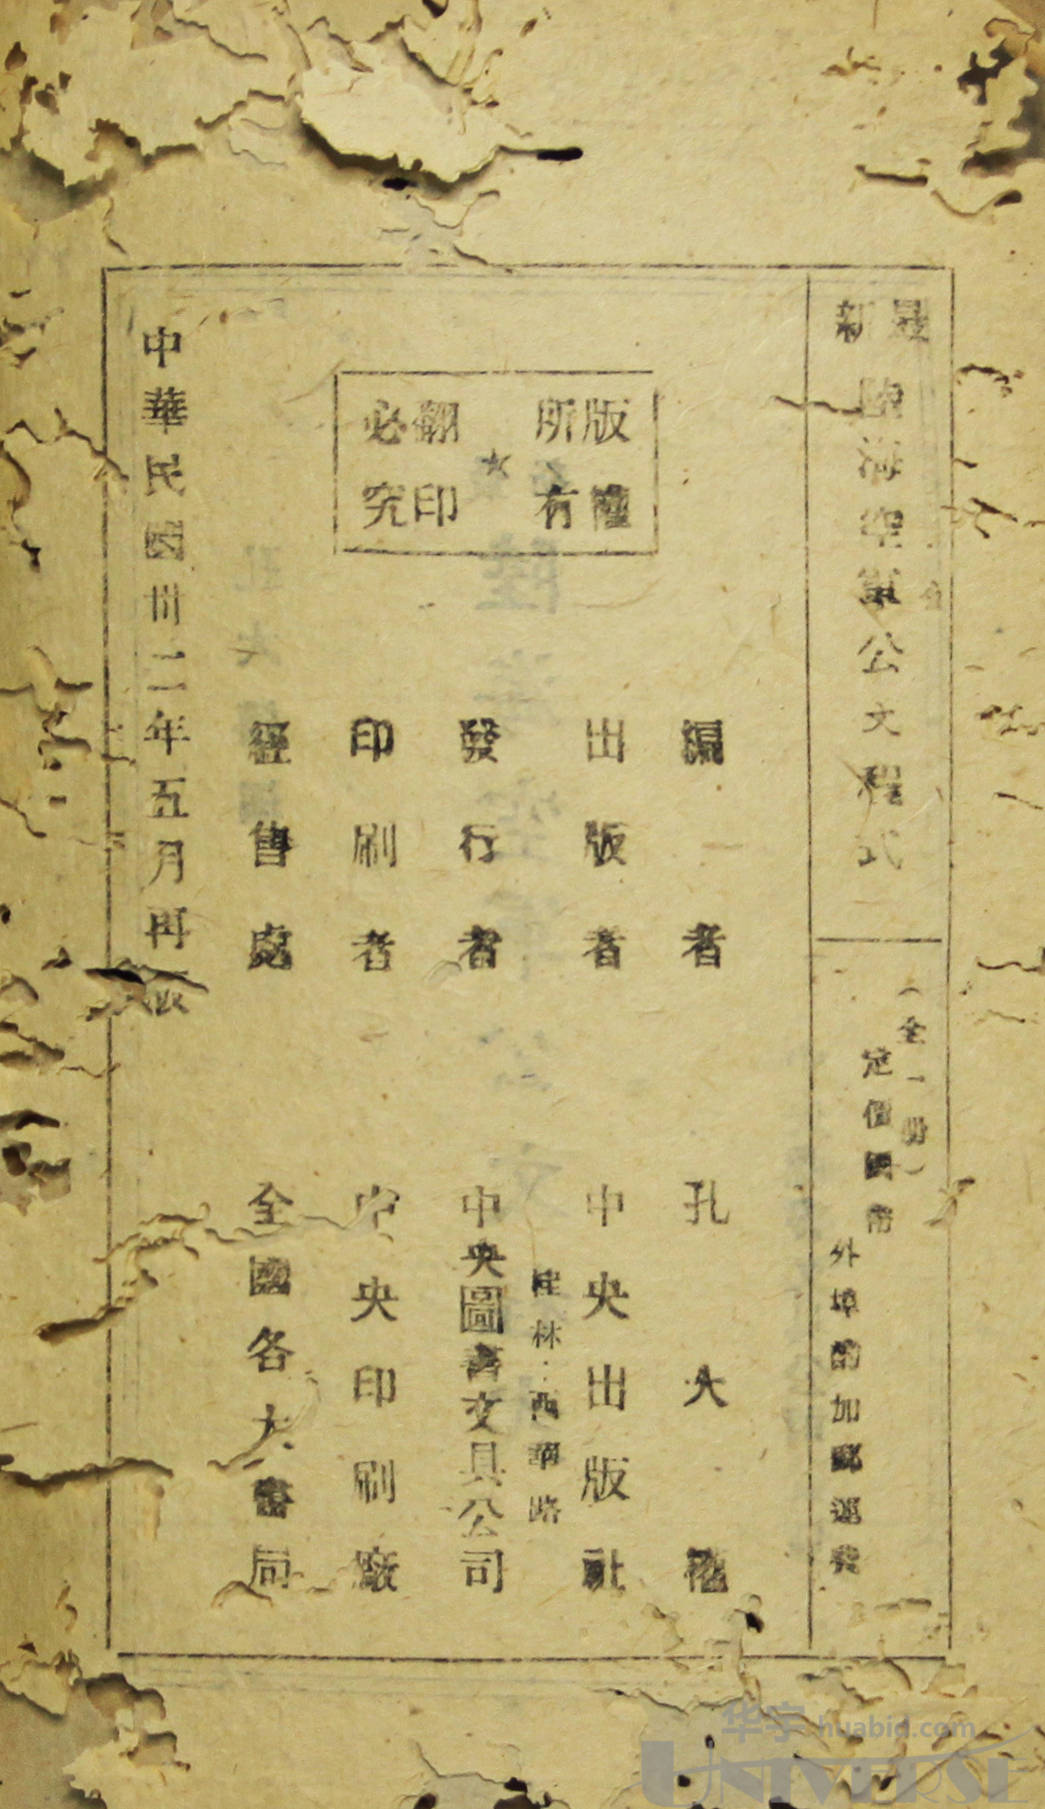 最新陸海空軍公文程式
（全一册）
定價國幣
外埠酌加郵運費
版權所有
★
翻印必究
編者　孔大
出版者　中央出版社
桂林·西華路
發行者　中央圖書文具公司
印刷者　中央印刷廠
經售處　全國各大書局
中華民國卅二年五月再版
华宇 huabid.com
UNIVERSE